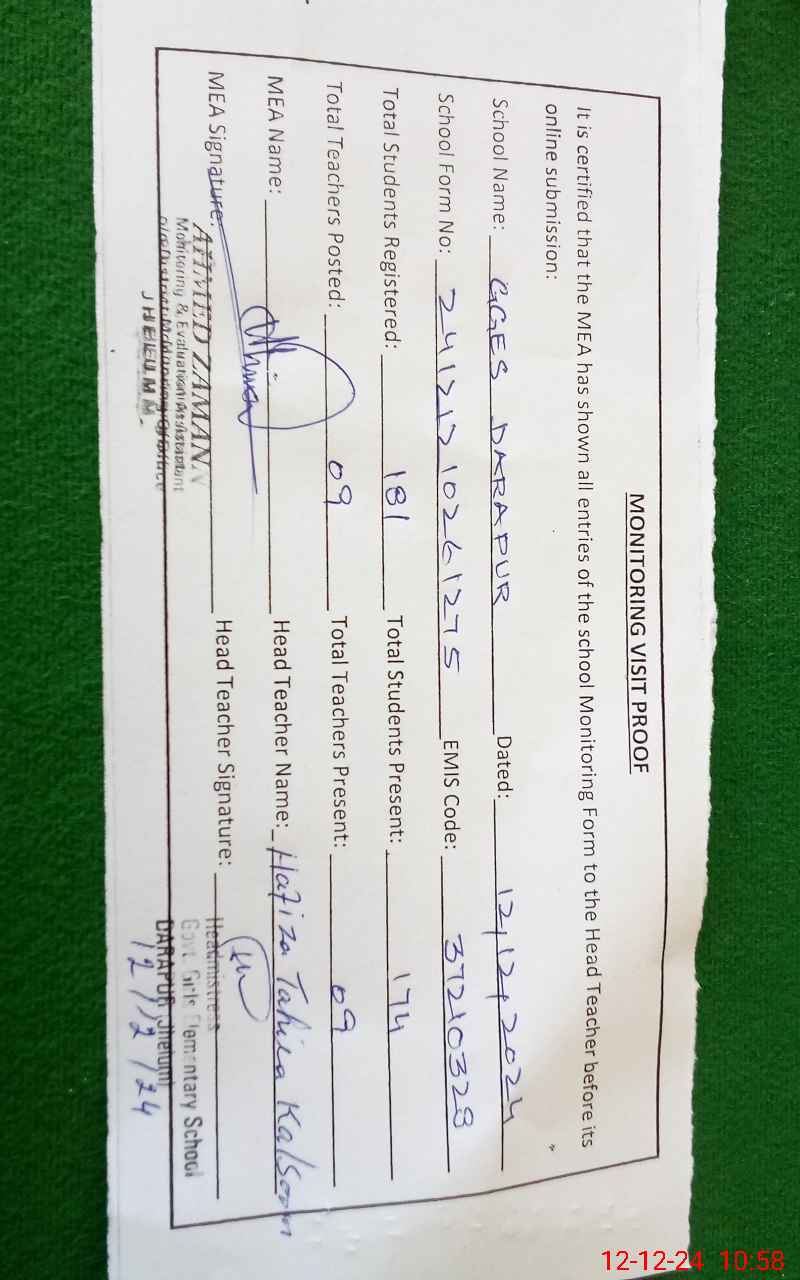 MONITORING VISIT PROOF
It is certified that the MEA has shown all entries of the school Monitoring Form to the Head Teacher before its
online submission:
School Name: GGES DARAPUR Dated: 12,12,2024
School Form No: 24121210261275 EMIS Code: 37210328
Total Students Registered: 181 Total Students Present: 174
Total Teachers Posted: 09 Total Teachers Present: 09
MEA Name: Head Teacher Name: Hafiza Tahira Kalsoom
MEA Signature: Head Teacher Signature:
AHMED ZAMAN
Monitoring & Evaluation Assistant
JHELUM
Headmistress
Govt. Girls Elementary School
DARAPUR (Jhelum)
12/12/24
12-12-24 10:58